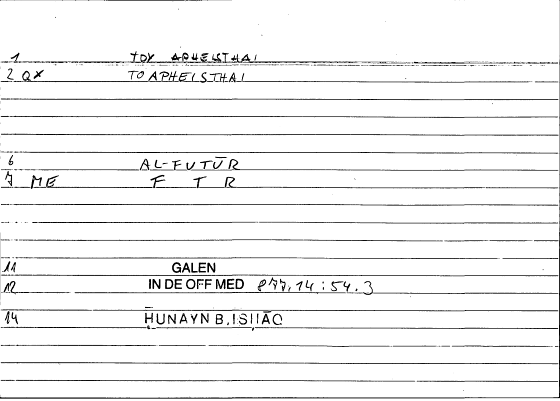 1 TOY APHEISTHAI
2 QX TO APHEISTHAI
6 AL-FUTŪR
7 ME F T R
11 GALEN
12 IN DE OFF MED 877,14 : 54.3
14 ḤUNAYN B.ISḤĀQ